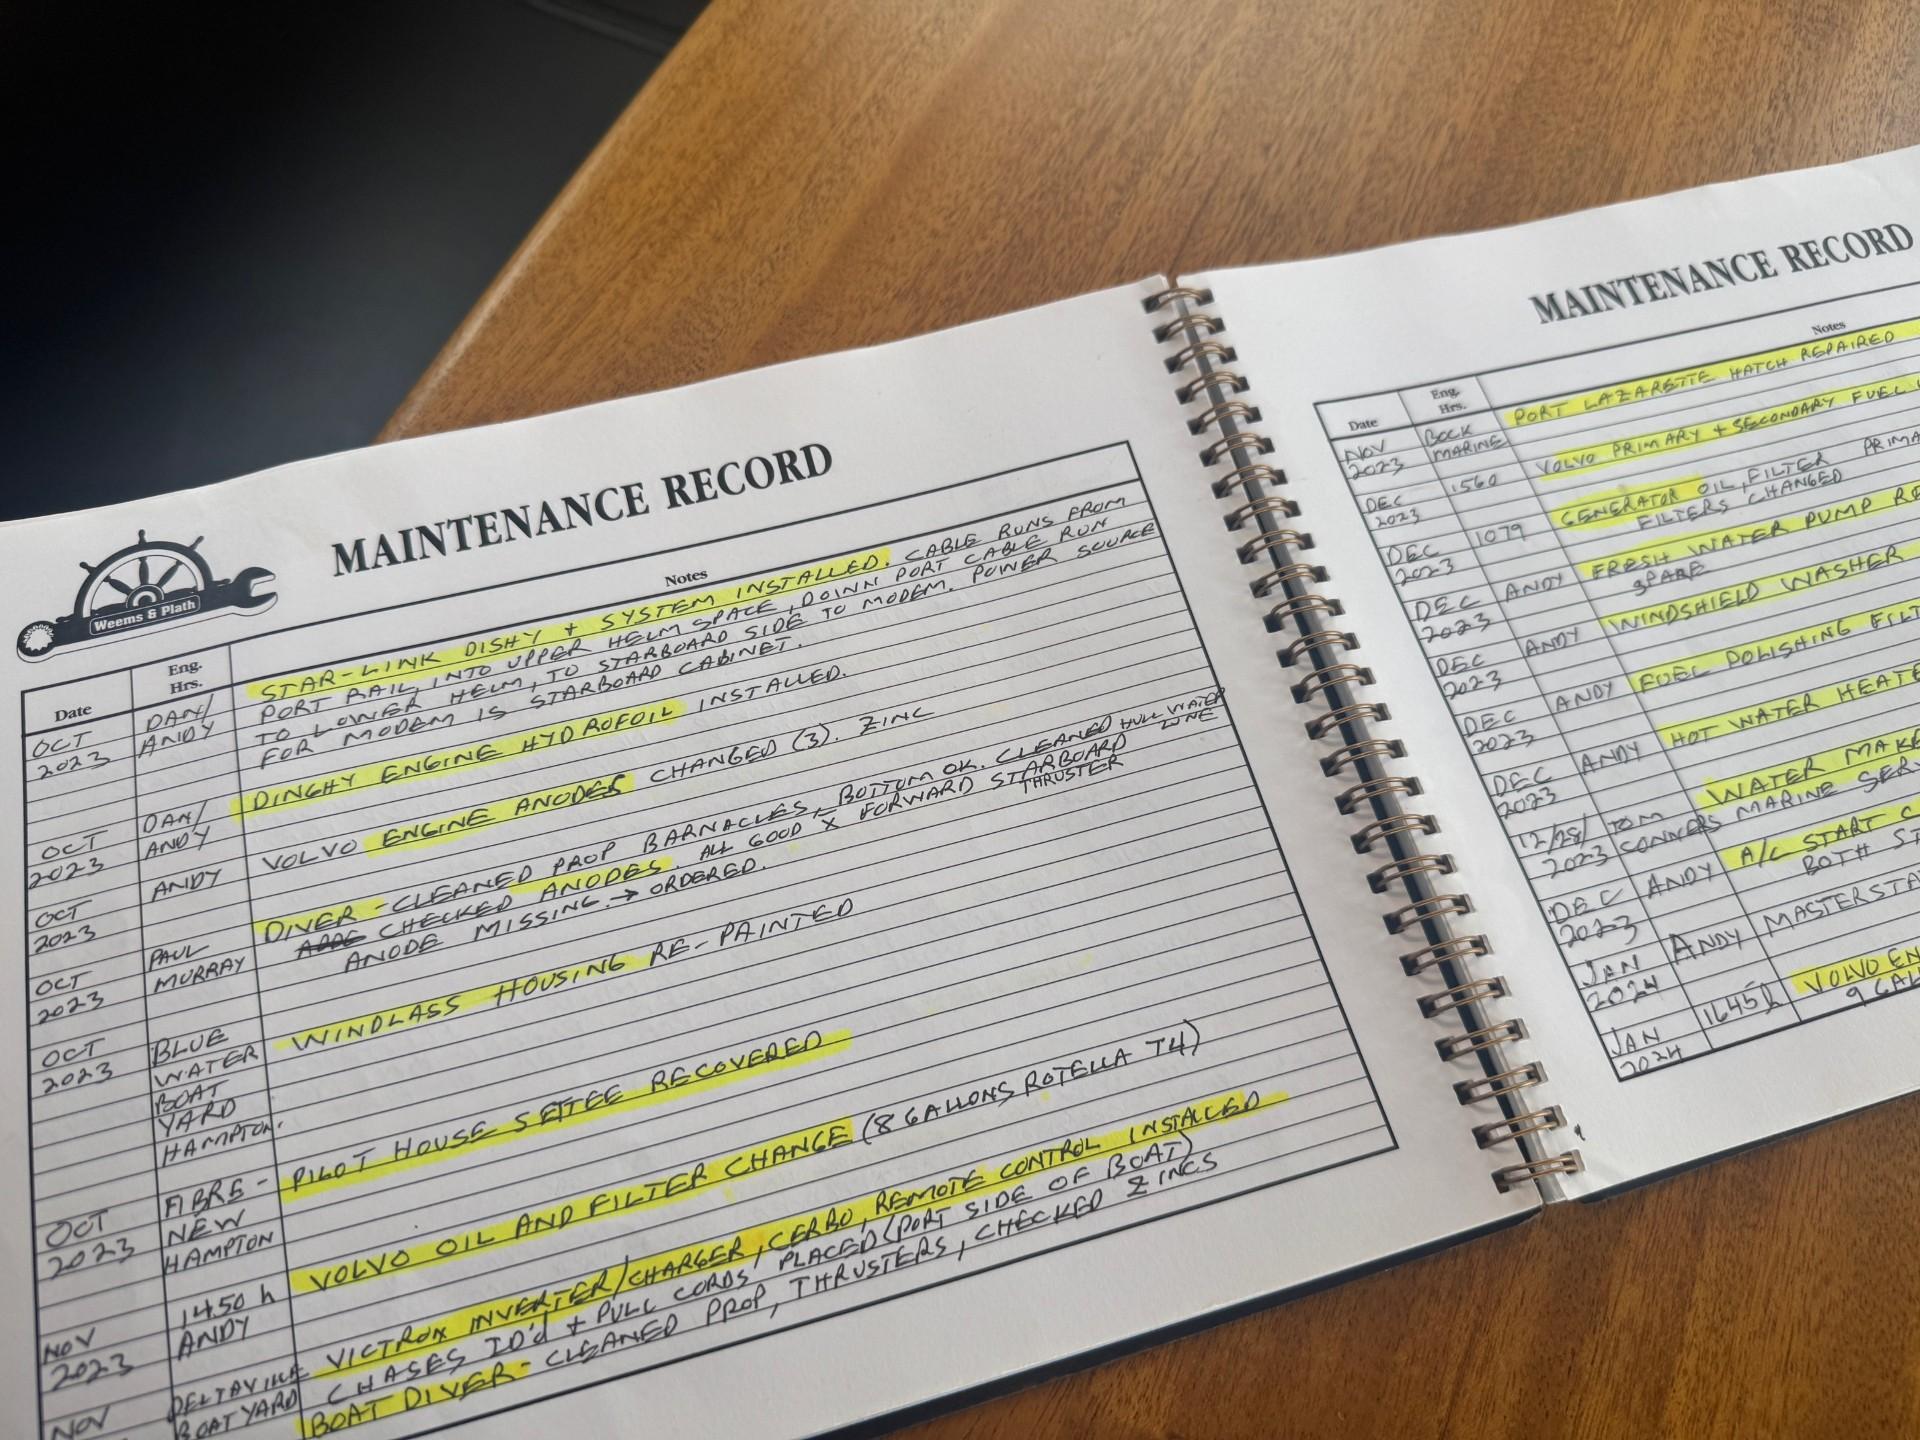 Weems & Plath
MAINTENANCE RECORD
Date Eng. Hrs. Notes
OCT 2023 DAN/ ANDY STAR-LINK DISHY + SYSTEM INSTALLED. CABLE RUNS FROM
PORT RAIL, INTO UPPER HELM SPACE, DOWN PORT CABLE RUN
TO LOWER HELM, TO STARBOARD SIDE TO MODEM. POWER SOURCE
FOR MODEM IS STARBOARD CABINET.
OCT 2023 DAN/ ANDY DINGHY ENGINE HYDROFOIL INSTALLED.
OCT 2023 ANDY VOLVO ENGINE ANODES CHANGED (3). ZINC
OCT 2023 PAUL MURRAY DIVER - CLEANED PROP BARNACLES, BOTTOM OK. CLEANED HULL WATER
LINE
CHECKED ANODES. ALL GOOD X FORWARD STARBOARD
THRUSTER
ANODE MISSING. → ORDERED.
OCT 2023 BLUE WATER BOAT YARD HAMPTON. WINDLASS HOUSING RE-PAINTED
OCT 2023 FIBRE- NEW HAMPTON PILOT HOUSE SETTEE RECOVERED
NOV 2023 1450 h ANDY VOLVO OIL AND FILTER CHANGE (8 GALLONS ROTELLA T4)
NOV DELTAVILLE BOATYARD VICTRON INVERTER/CHARGER, CERBO, REMOTE CONTROL INSTALLED
CHASES ID'd + PULL CORDS PLACED (PORT SIDE OF BOAT)
BOAT DIVER - CLEANED PROP, THRUSTERS, CHECKED ZINCS
MAINTENANCE RECORD
Date Eng. Hrs. Notes
NOV 2023 BOCK MARINE PORT LAZARETTE HATCH REPAIRED
DEC 2023 1560 VOLVO PRIMARY + SECONDARY FUEL
DEC 2023 1079 GENERATOR OIL, FILTER PRIMA
FILTERS CHANGED
DEC 2023 ANDY FRESH WATER PUMP RE
SPARE
DEC 2023 ANDY WINDSHIELD WASHER
DEC 2023 ANDY FUEL POLISHING FILT
DEC 2023 ANDY HOT WATER HEATE
12/28/2023 TOM CONNERS WATER MAKE
MARINE SERV
DEC 2023 ANDY A/C START C
BOTH ST
JAN 2024 ANDY MASTERSTA
JAN 2024 1645h VOLVO EN
9 GAL